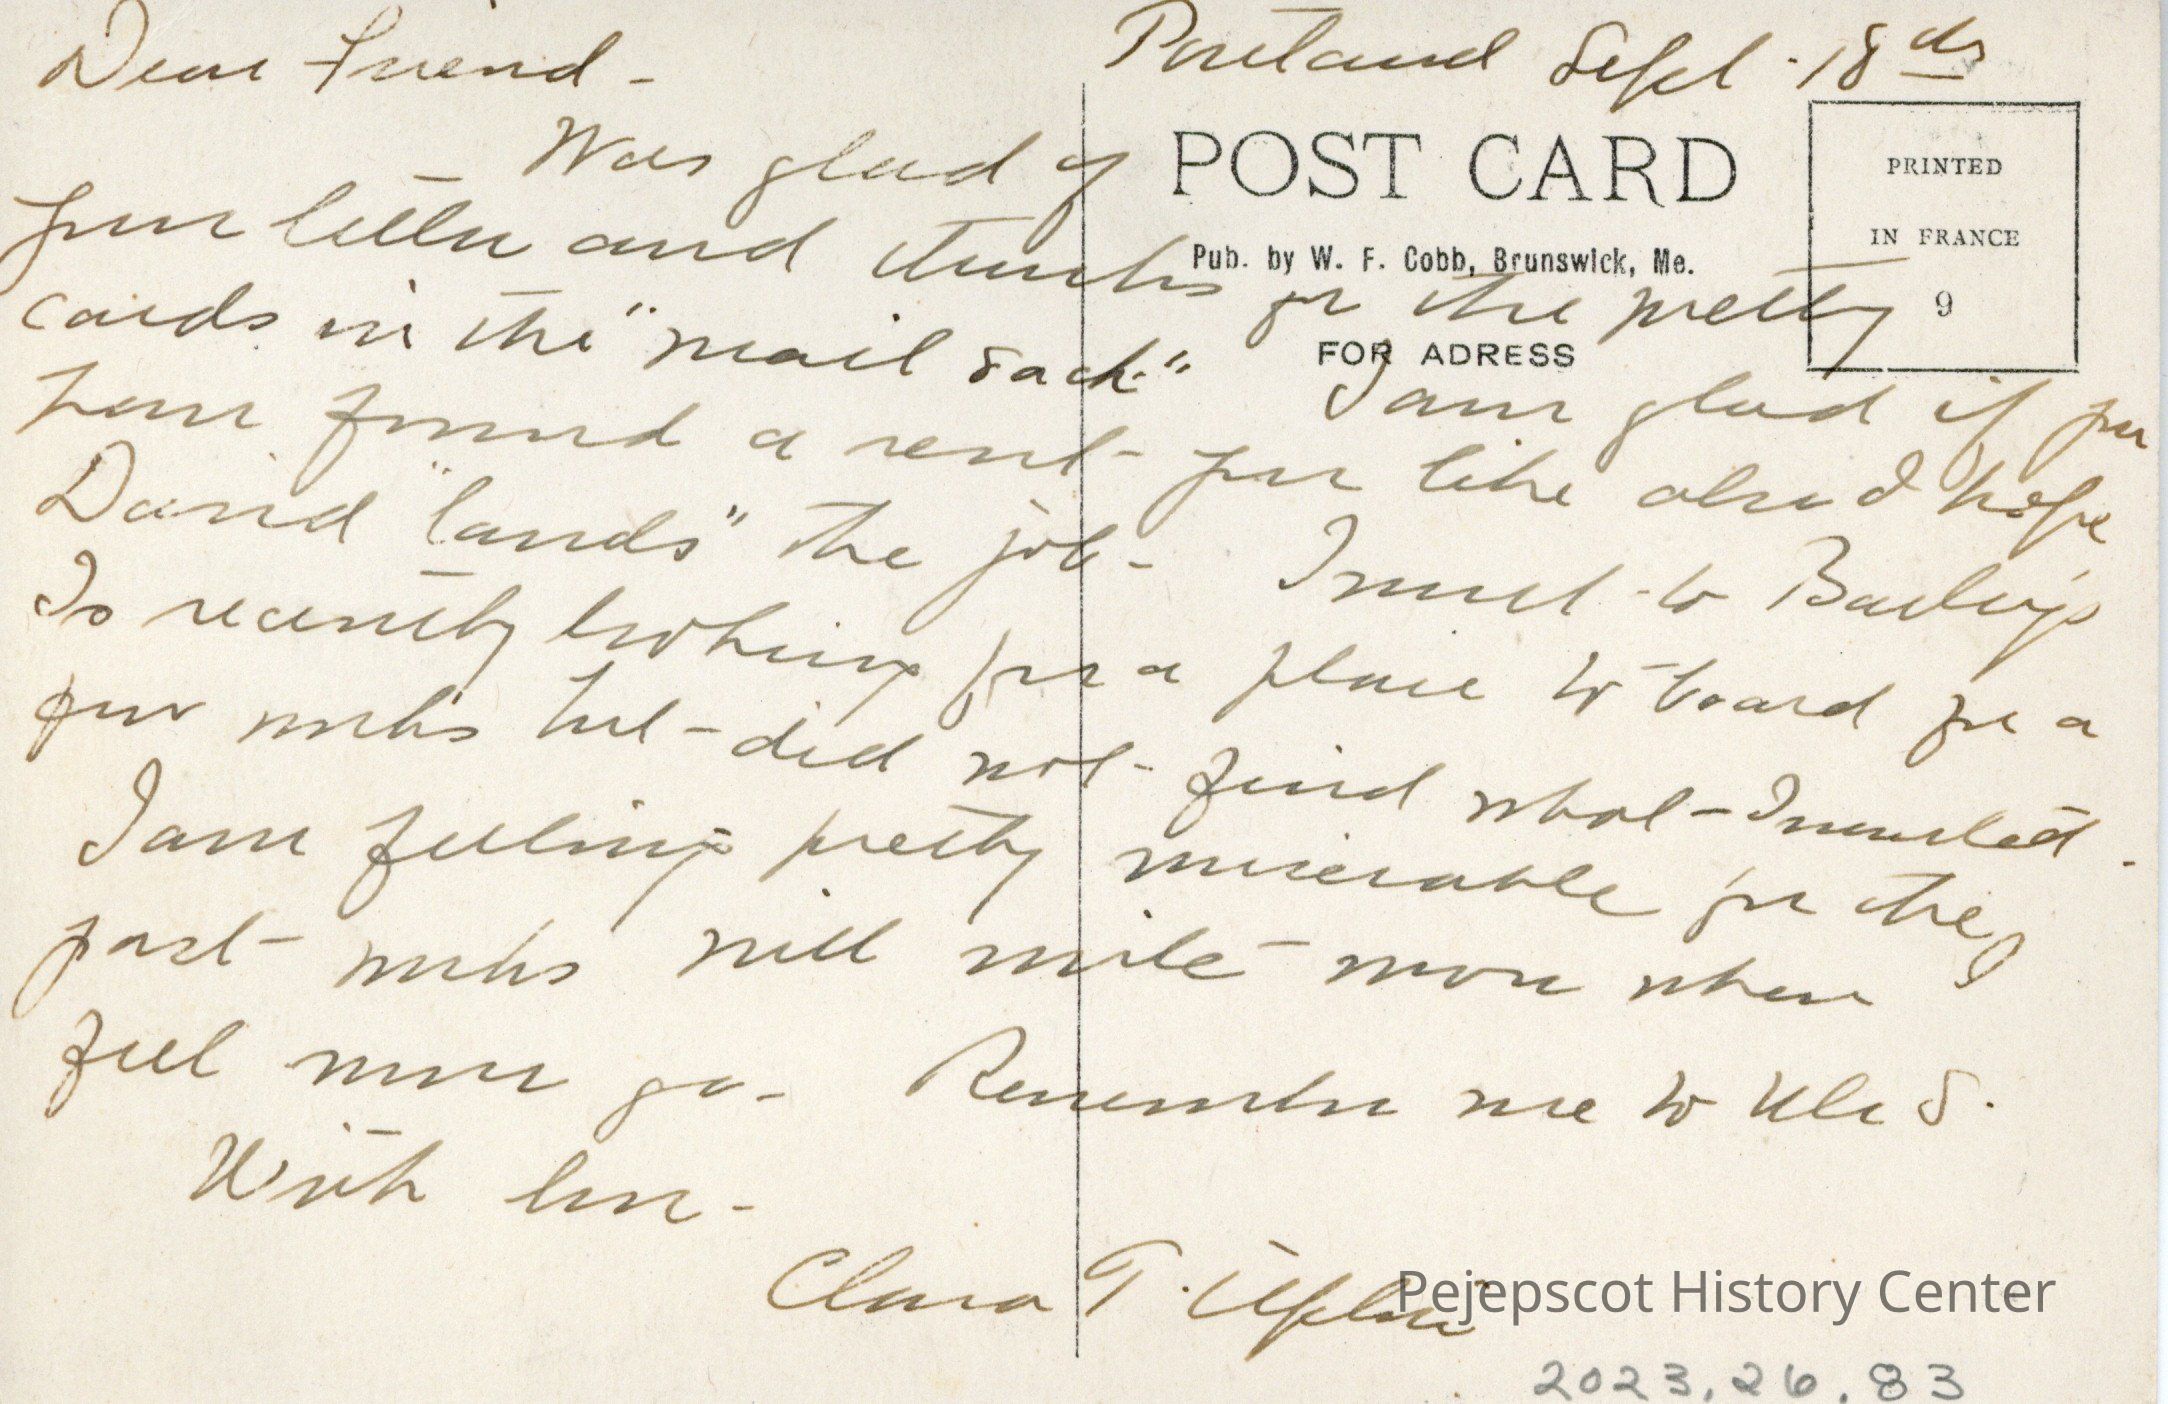 Portland Sept. 18th
Dear Friend -
POST CARD
Pub. by W. F. Cobb, Brunswick, Me.
FOR ADRESS
PRINTED
IN FRANCE
9
Was glad of
your letter and thanks for the pretty
cards in the "mail sack." I am glad if you
have found a rent - you like also I hope
David "lands" the job - I went to Bailey's
Is recently looking for a place to board for a
few weeks but - did not - find what - I wanted.
I am feeling pretty miserable for the
past - weeks will write more when I
feel more go - Remember me to S.
With love -
Clara T.
Pejepscot History Center
2023.26.83